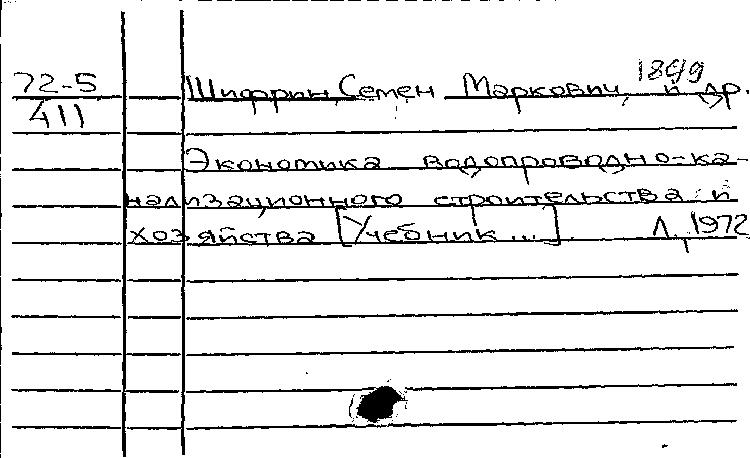 72-5
411
Шифрин, Семен Маркович, и др.
Экономика водопроводно-ка-
нализационного строительства и
хозяйства [Учебник ...]. Л., 1972